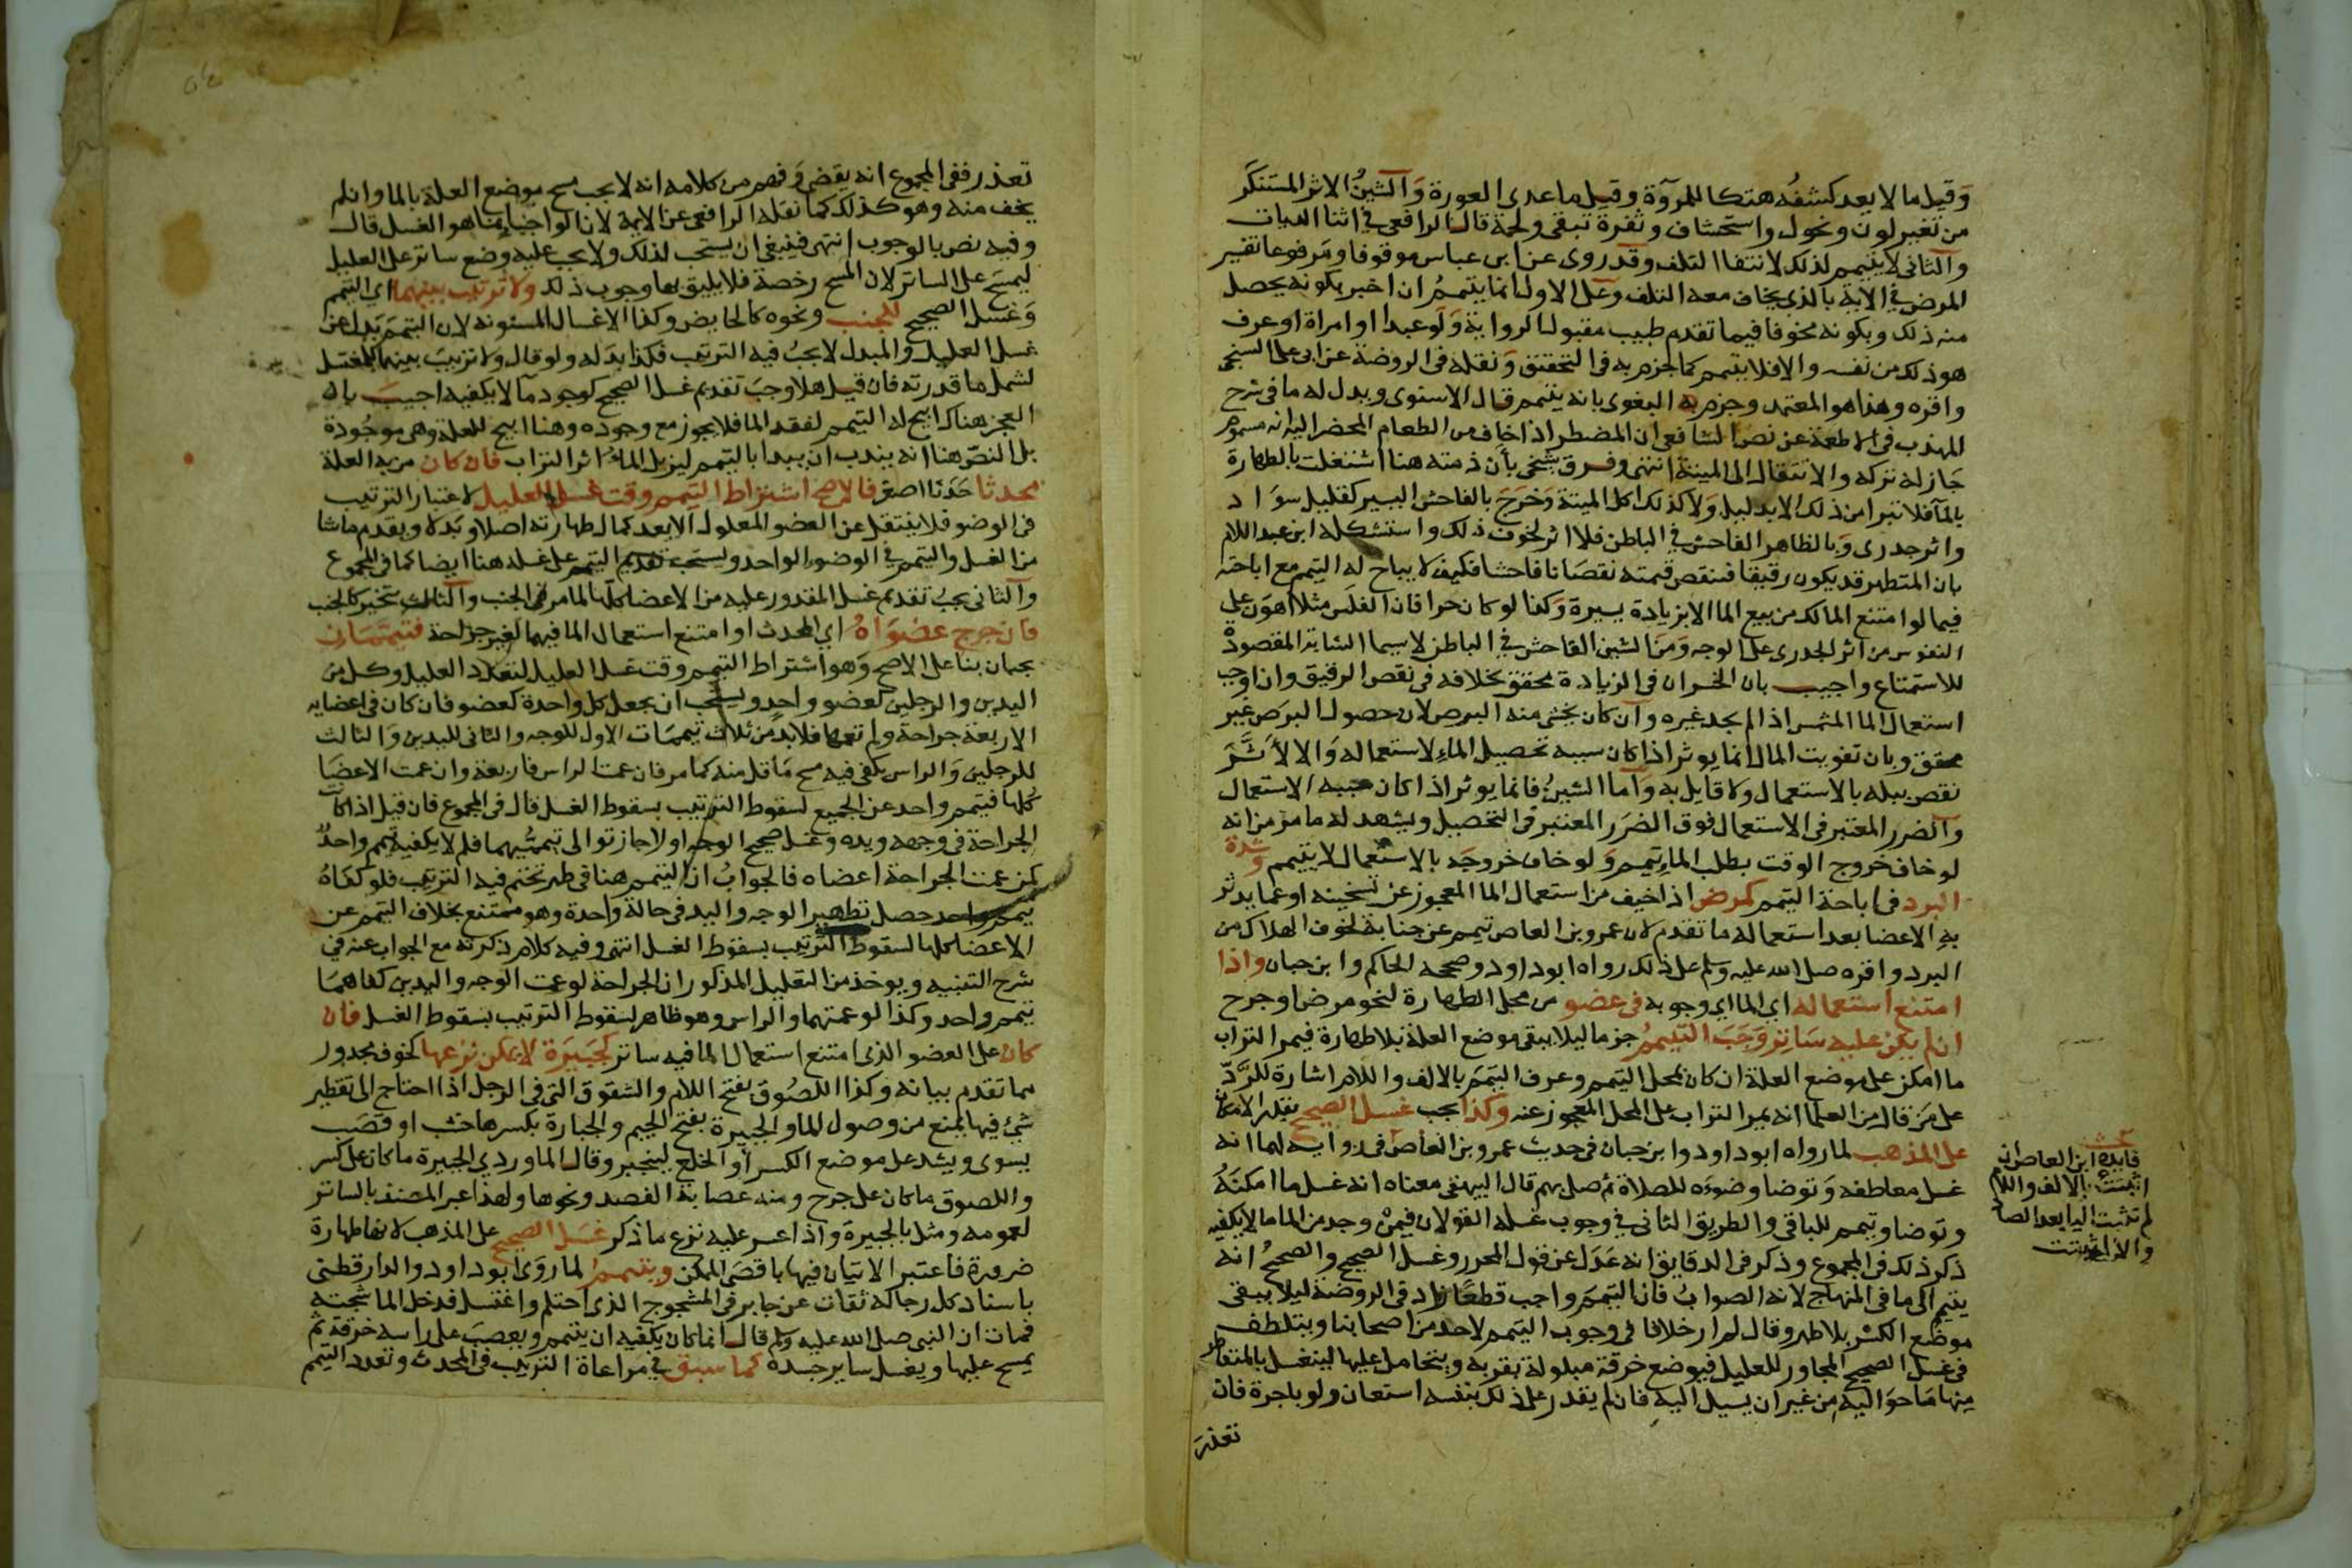 وقيل ما لا يعد كشفه هتكا للمروة وقيل ما عدى العورة والشين الاثر المستنكر
من تغير لون ونحول واستحشاف وثغرة تبقى ولحمة قال الرافعي في اثنا الديات
والثاني لا يتيمم لذلك لانتفا التلف وقد روى عن ابن عباس موقوفا ومرفوعا تفسير
المرض في الاية بالذي يخاف معه التلف وعلى الاول انما يتيمم ان اخبر بكونه يحصل
منه ذلك وبكونه مخوفا فيما تقدم طبيب مقبول الرواية ولو عبدا او امراة او عرف
هو ذلك من نفسه والا فلا يتيمم كما جزم به في التحقيق ونقله في الروضة عن ابي على السنجي
واقره وهذا هو المعتمد وجزم به البغوى بانه يتيمم قال الاسنوى ويدل له ما في شرح
المهذب في الاطعمة عن نص الشافعي ان المضطر اذا خاف من الطعام المحضر اليه انه مسموم
جاز له تركه والانتقال الى الميتة انتهى وفرق شيخي بأن ذمته هنا اشتغلت بالطهارة
بالمآ فلا تبرا من ذلك الا بدليل ولا كذلك اكل الميتة وخرج بالفاحش اليسير كقليل سواد
واثر جدرى وبالظاهر الفاحش في الباطن فلا اثر لخوف ذلك واستشكله ابن عبد السلام
بان المتطهر قد يكون رقيقا فتنقص قيمته نقصانا فاحشا فكيف لا يباح له التيمم مع اباحته
فيما لو امتنع المالك من بيع الما الا بزيادة يسيرة وكذا لو كان حرا فان الفلس مثلا اهون على
النفوس من اثر الجدرى على الوجه ومن الشين الفاحش في الباطن لا سيما الشابة المقصودة
للاستمتاع واجيب بان الخسران في الزيادة محقق بخلافه في نقص الرقيق وانما وجب
استعمال الما المشمس اذا لم يجد غيره وان كان يخشى منه البرص لان حصول البرص غير
محقق وبان تفويت المال انما يوثر اذا كان سببه تحصيل الماء لاستعماله والا لأثر
نقص يبله بالاستعمال ولا قايل به وأما الشين فانما يوثر اذا كان سببه الاستعمال
والضرر المعتبر في الاستعمال فوق الضرر المعتبر في التحصيل ويشهد له ما مر من انه
لو خاف خروج الوقت بطلب الماء تيمم ولو خاف خروجه بالاستعمال لا يتيمم وشدة
البرد في اباحة التيمم كمرض اذا خيف من استعمال الما المعجوز عن تسخينه او عما يدثر
به الاعضا بعد استعماله ما تقدم لان عمرو بن العاص تيمم عن جنابة لخوف الهلاك من
البرد واقره صلى الله عليه وسلم على ذلك رواه ابو داود وصححه الحاكم وابن حبان واذا
امتنع استعماله اي الما اي وجوبه في عضو من محل الطهارة لنحو مرض او جرح
ان لم يكن عليه ساتر وجب التيمم جزما ليلا يبقى موضع العلة بلا طهارة فيمر التراب
ما امكن على موضع العلة ان كان بمحل التيمم وعرف التيمم بالالف واللام اشارة للرد
على من قال من العلما انه يمر التراب على المحل المعجوز عنه وكذا يجب غسل الصحيح بقدر الامكان
على المذهب لما رواه ابو داود وابن حبان في حديث عمرو بن العاص في رواية لهما انه
غسل معاطفه وتوضا وضوءه للصلاة ثم صلى بهم قال البيهقي معناه انه غسل ما امكنه
وتوضا وتيمم للباقي والطريق الثاني في وجوب غسله القولان فيمن وجد من الما ما لا يكفيه
ذكر ذلك في المجموع وذكر في الدقايق انه عدل عن قول المحرر وغسل الصحيح والصحيح انه
يتيم الى ما في المنهاج لانه الصواب فان التيمم واجب قطعا زاد في الروضة ليلا يبقى
موضع الكسر بلا طهر وقال لم ار خلافا في وجوب التيمم لاحد من اصحابنا ويتلطف
في غسل الصحيح المجاور للعليل فيوضع خرقة مبلولة بقربه ويتحامل عليها لينغسل بالمتقاطر
منها ما حواليه من غير ان يسيل اليه فان لم يقدر على ذلك بنفسه استعان ولو باجرة فان
تعذر
فايدة ابن العاص ان
اثبتت بالالف واللام
لم تثبت اليا بعد الصاد
والا اثبتت
تعذر ففي المجموع انه يقضي وفهم من كلامه انه لا يجب مسح موضع العلة بالما وان لم
يخف منه وهو كذلك كما نقله الرافعي عن الايمة لان الواجب انما هو الغسل قال
وفيه نص بالوجوب انتهى فينبغي ان يستحب لذلك ولا يجب عليه وضع ساتر على العليل
ليمسح على الساتر لان المسح رخصة فلا يليق بها وجوب ذلك ولا ترتيب بينهما اي التيمم
وغسل الصحيح للجنب ونحوه كالحايض وكذا الاغسال المسنونه لان التيمم بدل عن
غسل العليل والمبدل لا يجب فيه الترتيب فكذا بدله ولو قال ولا ترتيب بينهما للمغتسل
لشمل ما قدرته فان قيل هلا وجب تقديم غسل الصحيح كوجود ما لا يكفيه اجيب بان
العجز هناك ابيح له التيمم لفقد الما فلا يجوز مع وجوده وهنا ابيح للعلة وهي موجودة
بل النص هنا انه يندب ان يبدا بالتيمم ليزيل الماء اثر التراب فان كان من به العلة
محدثا حدثا اصغر فالاصح اشتراط التيمم وقت غسل العليل لاعتبار الترتيب
في الوضو فلا ينتقل عن العضو المعلول الا بعد كمال طهارته اصلا وبدلا ويقدم ما شا
من الغسل والتيمم في الوضوء الواحد ويستحب تقديم التيمم على غسله هنا ايضا كما في المجموع
والثاني يجب تقديم غسل المقدور عليه من الاعضا كلها لما مر في الجنب والثالث يتخير كالجنب
فان جرح عضواه اي المحدث او امتنع استعمال الما فيهما لغير جراحة فتيممان
يجبان بنا على الاصح وهو اشتراط التيمم وقت غسل العليل لتعدد العليل وكل من
اليدين والرجلين كعضو واحد ويستحب ان يجعل كل واحدة كعضو فان كان في اعضايه
الاربعة جراحة ولم تعمها فلا بد من ثلاث تيممات الاول للوجه والثاني لليدين والثالث
للرجلين والراس يكفي فيه مسح ما قل منه كما مر فان عمت الراس فاربعة وان عمت الاعضا
كلها فتيمم واحد عن الجميع لسقوط الترتيب بسقوط الغسل قال في المجموع فان قيل اذا كانت
الجراحة في وجهه ويده وغسل صحيح الوجه اولا جاز توالى تيممهما فلم لا يكفيه تيمم واحد
كمن عمت الجراحة اعضاه فالجواب ان التيمم هنا في طهر تحتم فيه الترتيب فلو كفاه
تيمم واحد حصل تطهير الوجه واليد في حالة واحدة وهو ممتنع بخلاف التيمم عن
الاعضا كلها لسقوط الترتيب بسقوط الغسل انتهى وفيه كلام ذكرته مع الجواب عنه في
شرح التنبيه ويوخذ من التعليل المذكور ان الجراحة لو عمت الوجه واليدين كفاهما
تيمم واحد وكذا لو عمتهما والراس وهو ظاهر لسقوط الترتيب بسقوط الغسل فان
كان على العضو الذى امتنع استعمال الما فيه ساتر كجبيرة لا يمكن نزعها لخوف محذور
مما تقدم بيانه وكذا اللصوق بفتح اللام والشقوق التي في الرجل اذا احتاج الى تقطير
شيء فيها يمنع من وصول الما والجبيرة بفتح الجيم والجبارة بكسرها خشب او قصب
يسوى ويشد على موضع الكسر أو الخلع لينجبر وقال الماوردي الجبيرة ما كان على كسر
واللصوق ما كان على جرح ومنه عصابة الفصد ونحوها ولهذا عبر المصنف بالساتر
لعمومه ومثل بالجبيرة واذا عسر عليه نزع ما ذكر غسل الصحيح على المذهب لانها طهارة
ضرورة فاعتبر الاتيان فيها باقصى الممكن وتيمم لما روى ابو داود والدارقطني
باسناد كل رجاله ثقات عن جابر في المشجوج الذى احتلم واغتسل فدخل الما شجته
فمات ان النبي صلى الله عليه وسلم قال انما كان يكفيه ان يتيمم ويعصب على راسه خرقة ثم
يمسح عليها ويغسل ساير جسده كما سبق في مراعاة الترتيب في المحدث وتعدد التيمم